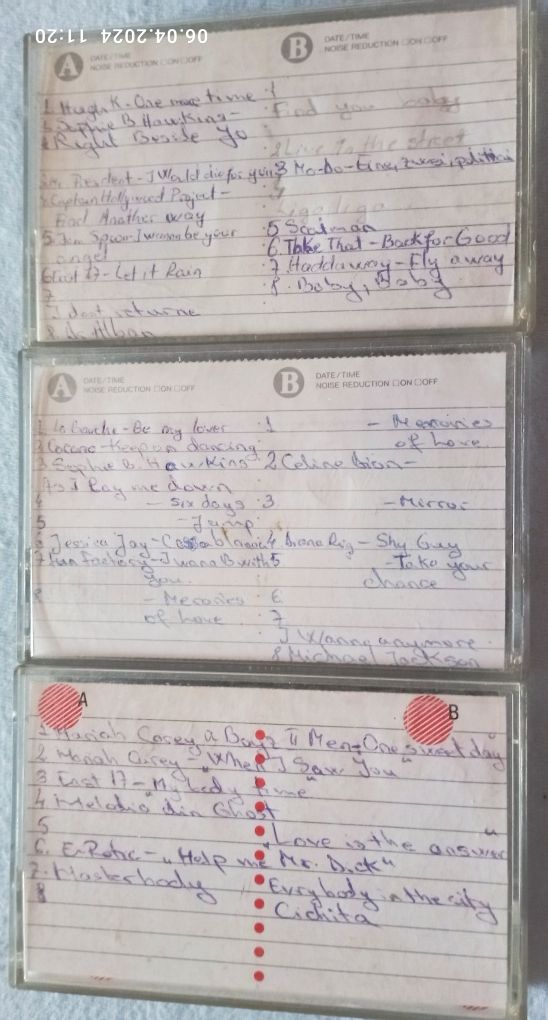 06.04.2024 11:20
A DATE/TIME
NOISE REDUCTION □ON □OFF
B DATE/TIME
NOISE REDUCTION □ON □OFF
1. Hugh K - One more time
Sophie B. Hawking-
Right Beside Yo
Mr. President - I World die for you
Captain Hollywood Project -
Find Another way
5 Jam Spoon I wanna be your
angel
6 East 17 - Let it Rain
7
I dont returne
8 Dr Alban
1
Find you baby
2 Live In the street
3 Mo-Do - Eins, zwei, politizai
4
5 Scatman
6 Take That - Back for Good
7 Haddaway - Fly away
8. Baby, Baby
A DATE/TIME
NOISE REDUCTION □ON □OFF
B DATE/TIME
NOISE REDUCTION □ON □OFF
1 La bouche - Be my lover
2 Corona - Keep on dancing
3 Sophie B. Hawking
As I Lay me down
4 - six days
5 - Jump
6 Jessica Jay - Casablanca
7 Fun Factory - I wana B with
you.
8 - Memories
of Love
1 - Memories
of Love
2 Celine Dion -
3 - Mirror
4 Diana King - Shy Guy
5 - Take your
chance
6
7
I Wanna anymore
8 Michael Jackson
A
B
1 Mariah Carey a Boyz II Men - One sweet day
2 Mariah Carey - "When I Saw You"
3 East 17 - "My lady time"
4 Melodia din Ghost
5 "Love is the answer"
6. E-Rotic - "Help me Mr. Dick"
7. Masterbody
8 Evrybody in the city
Cichita